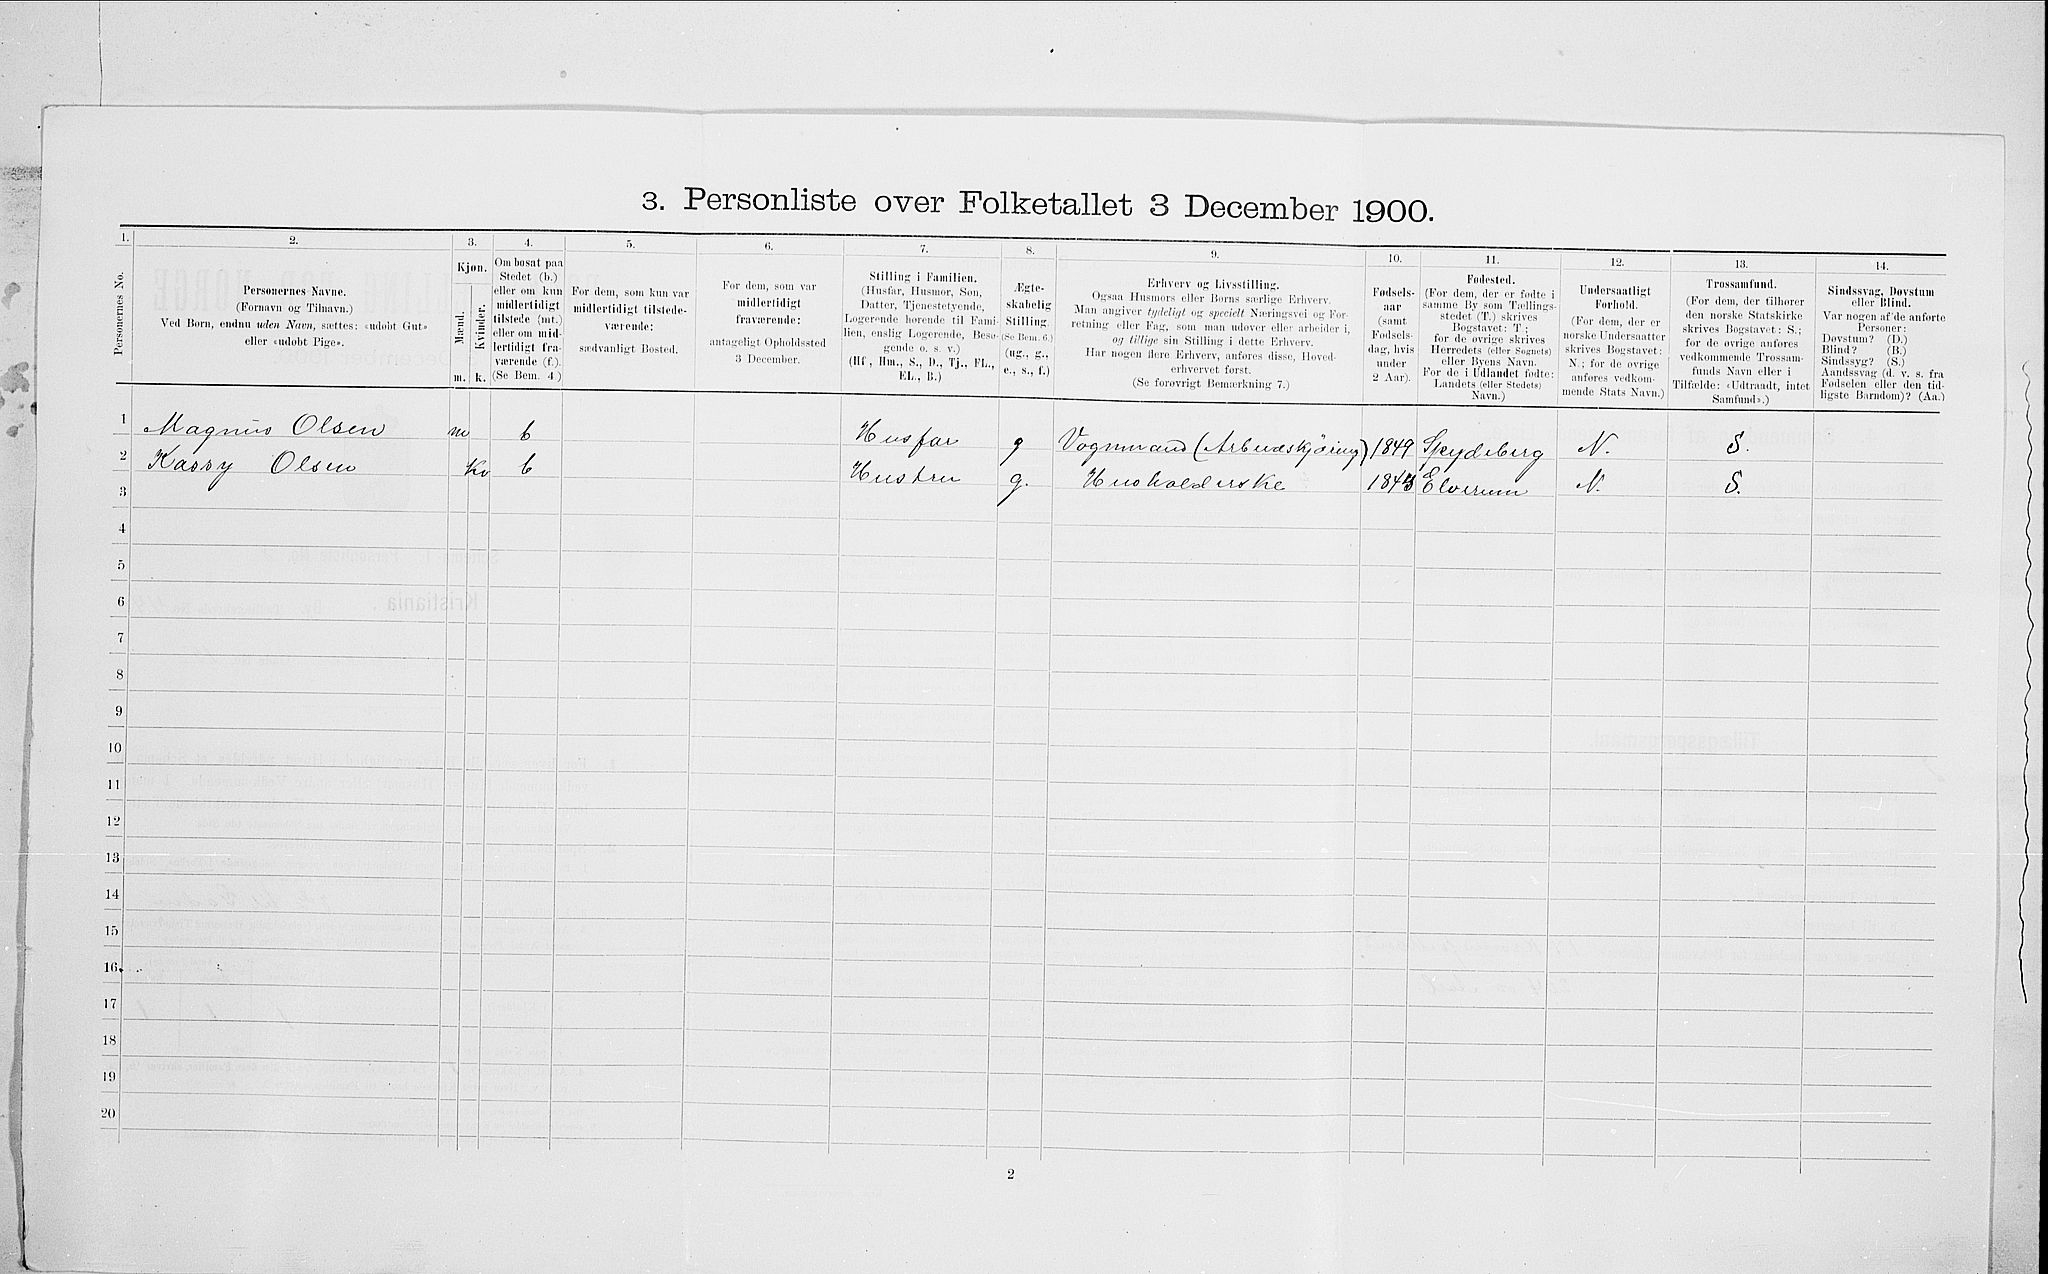 3. Personliste over Folketallet 3 December 1900.
1. 2. 3. 4. 5. 6. 7. 8. 9. 10. 11. 12. 13. 14.
Personernes No.
Personernes Navne.
(Fornavn og Tilnavn.)
Ved Børn, endnu uden Navn, sættes: «udøbt Gut»
eller «udøbt Pige».
Kjøn.
Mænd.
Kvinder.
m. k.
Om bosat paa
Stedet (b.)
eller om kun
midlertidigt
tilstede (mt.)
eller om mid-
lertidigt fra-
værende (f.)
(Se Bem. 4.)
For dem, som kun var
midlertidigt tilstede-
værende:
sædvanligt Bosted.
For dem, som var
midlertidigt
fraværende:
antageligt Opholdssted
3 December.
Stilling i Familien.
(Husfar, Husmor, Søn,
Datter, Tjenestetyende,
Logerende hørende til Fami-
lien, enslig Logerende, Besø-
gende o. s. v.)
(Hf., Hm., S., D., Tj., FL.,
EL., B.)
Ægte-
skabelig
Stilling.
(Se Bem. 6.)
(ug., g.,
e., s., f.)
Erhverv og Livsstilling.
Ogsaa Husmors eller Børns særlige Erhverv.
Man angiver tydeligt og specielt Næringsvei og For-
retning eller Fag, som man udøver eller arbeider i,
og tillige sin Stilling i dette Erhverv.
Har nogen flere Erhverv, anføres disse, Hoved-
erhvervet først.
(Se forøvrigt Bemærkning 7.)
Fødsels-
aar
(samt
Fødsels-
dag, hvis
under
2 Aar).
Fødested.
(For dem, der er fødte i
samme By som Tællings-
stedet (T.) skrives
Bogstavet: T.;
for de øvrige skrives
Herredets (eller Sognets)
eller Byens Navn.
For de i Udlandet fødte:
Landets (eller Stedets)
Navn.)
Undersaatligt
Forhold.
(For dem, der er
norske Undersaatter
skrives Bogstavet:
N.; for de øvrige
anføres vedkom-
mende Stats Navn.)
Trossamfund.
(For dem, der tilhører
den norske Statskirke
skrives Bogstavet: S.;
for de øvrige anføres
vedkommende Trossam-
funds Navn eller i
Tilfælde: «Udtraadt, intet
Samfund».)
Sindssvag, Døvstum
eller Blind.
Var nogen af de anførte
Personer:
Døvstum? (D.)
Blind? (B.)
Sindssyg? (S.)
Aandssvag (d. v. s. fra
Fødselen eller den tid-
ligste Barndom)? (Aa.)
1 Magnus Olsen m b Husfar g Vognmand (Arbeidskjøring) 1849 Spydeberg N. S.
2 Kassy Olsen kv b Hustru g. Husholderske Elverum N. S.
3
4
5
6
7
8
9
10
11
12
13
14
15
16
17
18
19
20
2